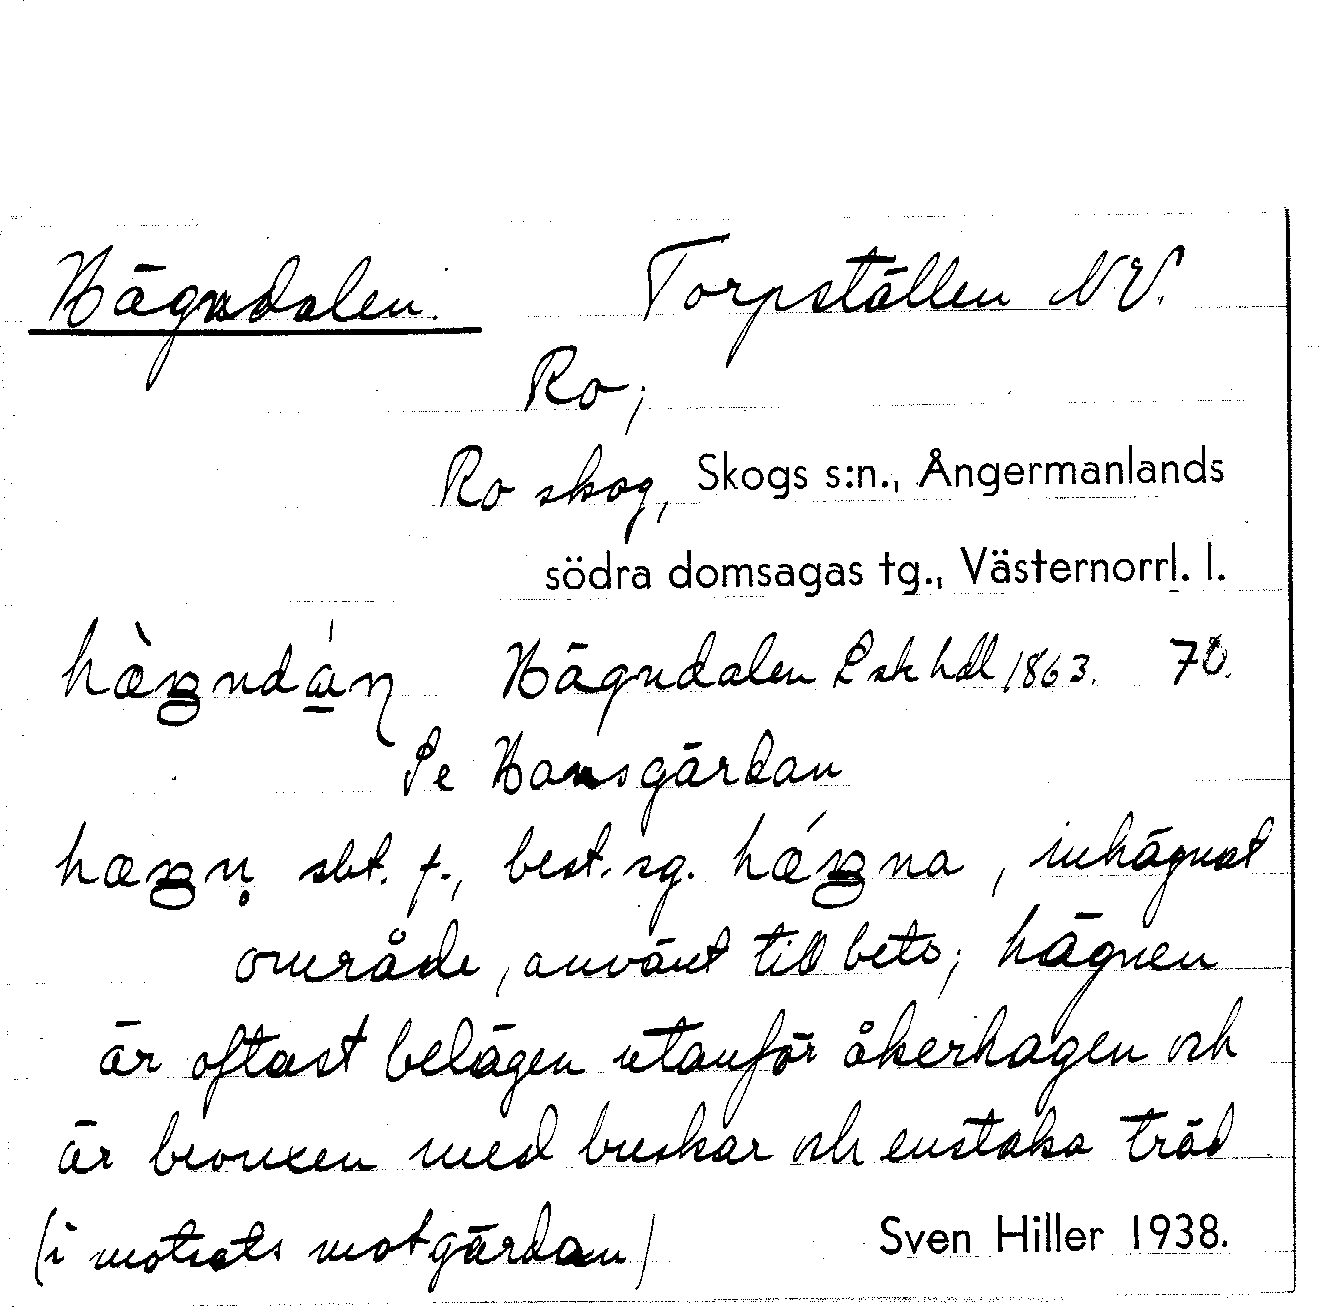 Hägndalen. Torpställen NV.
Ro;
Ro skog, Skogs s:n., Ångermanlands
södra domsagas tg., Västernorrl. l.
Hägndalen L sk hdl 1863. 70.
Pe Hansgärdan
sbt. f., best. sg. , inhägnat
område, använt till bete; hägnen
är oftast belägen utanför åkerhagen och
är bevuxen med buskar och enstaka träd
(i motsats mot gärdan) Sven Hiller 1938.